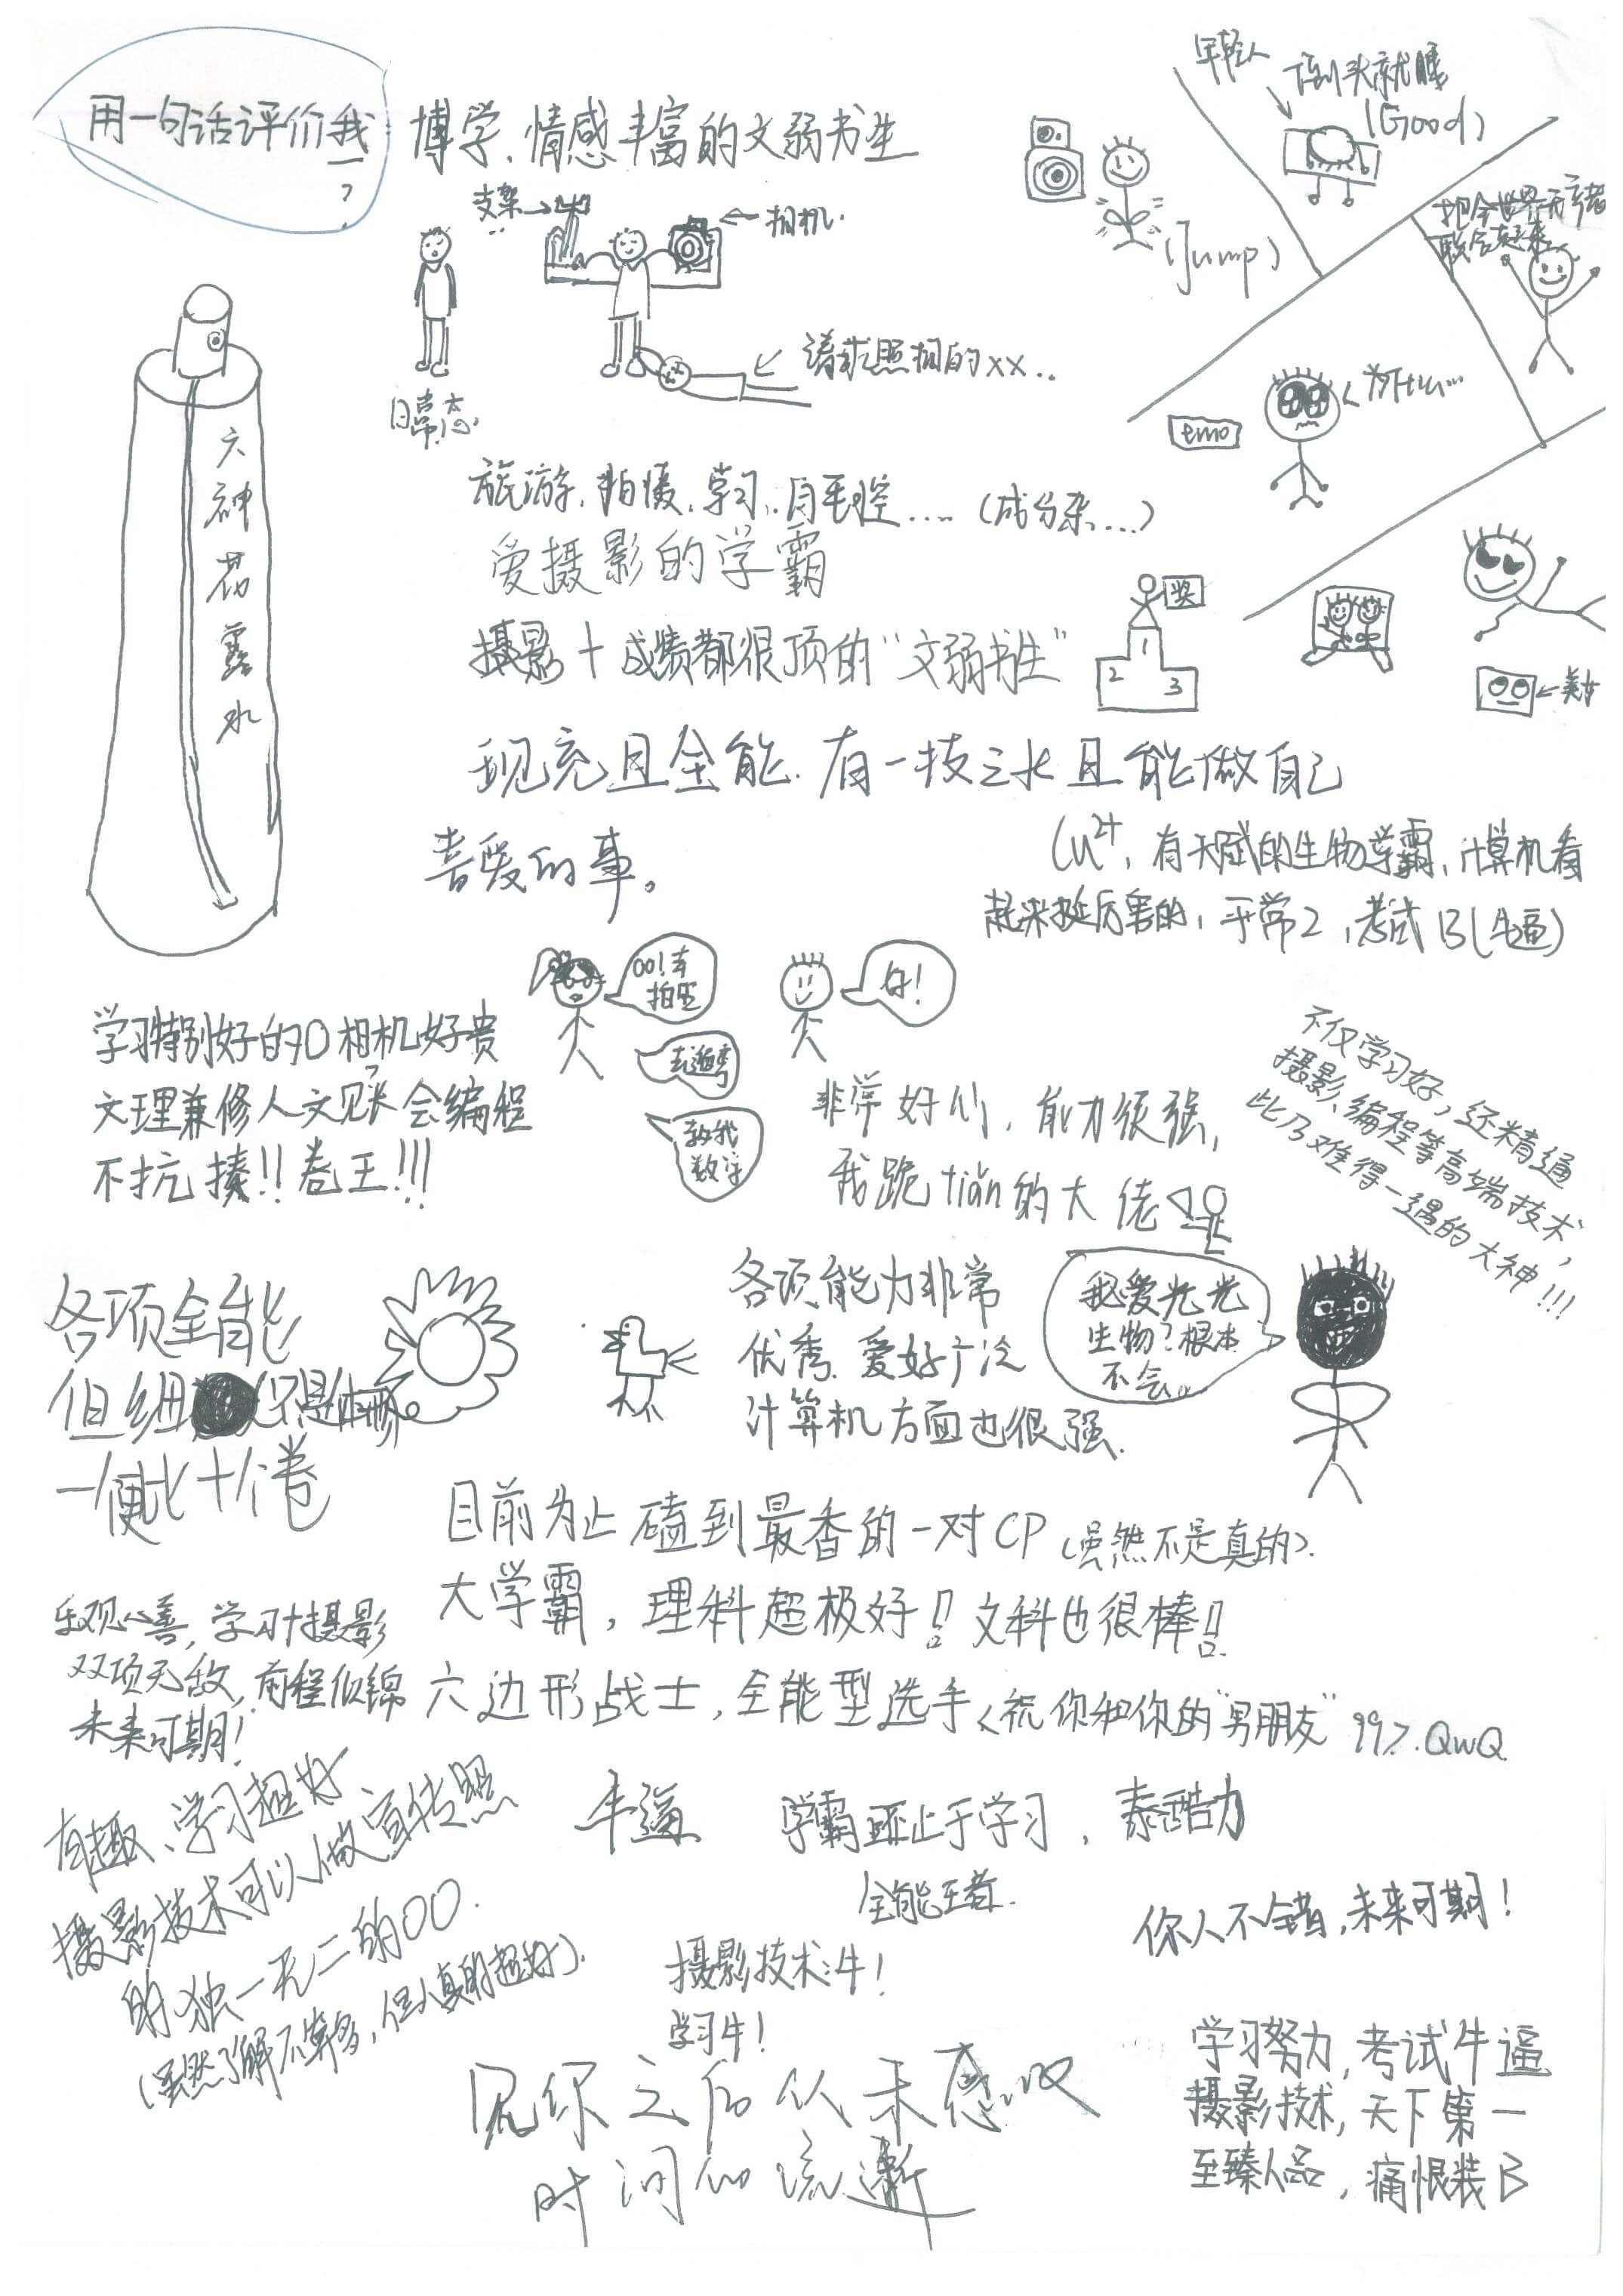 用一句话评价我
?
博学、情感丰富的文弱书生
支架
相机
请求照相的xx..
日常态
六神花露水
(Jump)
年轻人
倒头就睡
(Good)
把全世界无产者
联合起来
emo
旅游、拍摄、学习、自毛控....(成分杂...)
爱摄影的学霸
摄影+成绩都很顶的“文弱书生”
奖
1
2 3
美女
现充且全能. 有一技之长且能做自己
喜爱的事。
Cu²⁺, 有天赋的生物学霸, 计算机看
起来挺厉害的, 平常2, 考试B(牛逼)
OO!去
拍照
好!
教我
数学
学习特别好的O相机好贵
文理兼修人文见长会编程
不抗揍!!卷王!!!
非常好心, 能力很强,
我跪tiǎn的大佬
不仅学习好, 还精通
摄影、编程等高端技术,
此乃难得一遇的大神!!!
各项全能
各项能力非常
优秀. 爱好广泛
计算机方面也很强.
我爱光光
生物?根本
不会。
目前为止磕到最香的一对CP(虽然不是真的).
大学霸, 理科超极好!!文科也很棒!!
乐观心善, 学习+摄影
双项无敌, 前程似锦
未来可期!
六边形战士, 全能型选手<祝你和你的“男朋友”99>.QwQ
有趣、学习超好
摄影技术可以做宣传照
的独一无二的OO.
(虽然了解不算多, 但人真的超好).
牛逼
学霸还止于学习, 泰酷力
全能王者.
你人不错, 未来可期!
摄影技术:牛!
学习牛!
见你之后从未感叹
时间的流逝
学习努力, 考试牛逼
摄影技术, 天下第一
至臻人品, 痛恨装B